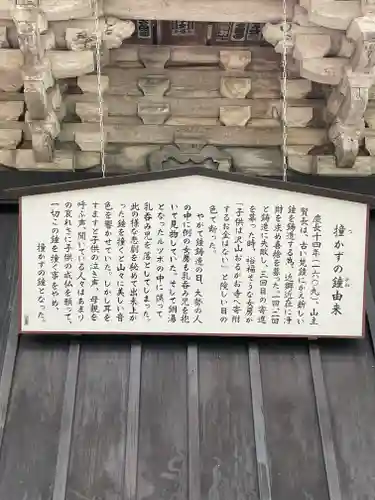 撞かずの鐘由来
慶長十四年(一六〇九)、山主
賢長は、古い梵鐘にかえ新しい
鐘を鋳造する為、近郷近在に浄
財を求め喜捨を募った。一回二回
と鋳造に失敗し、三回目の寄進
を募った時、裕福そうな女房が
「子供は沢山おるがお寺へ寄附
するお金はない」と険しい目の
色で断った。
やがて鐘鋳造の日、大勢の人
の中に例の女房も乳呑み児を抱
いて見物していた。そして銅湯
となったルツボの中に誤って
乳呑み児を落としてしまった。
此の様な悲劇を秘めて出来上が
った鐘を撞くと山々に美しい音
色を響かせていた。しかし耳を
すますと子供の泣き声、母親を
呼ぶ声、聞いている人々はあまり
の哀れさに子供の成仏を願って、
一切この鐘を撞く事をやめ、
撞かずの鐘となった。